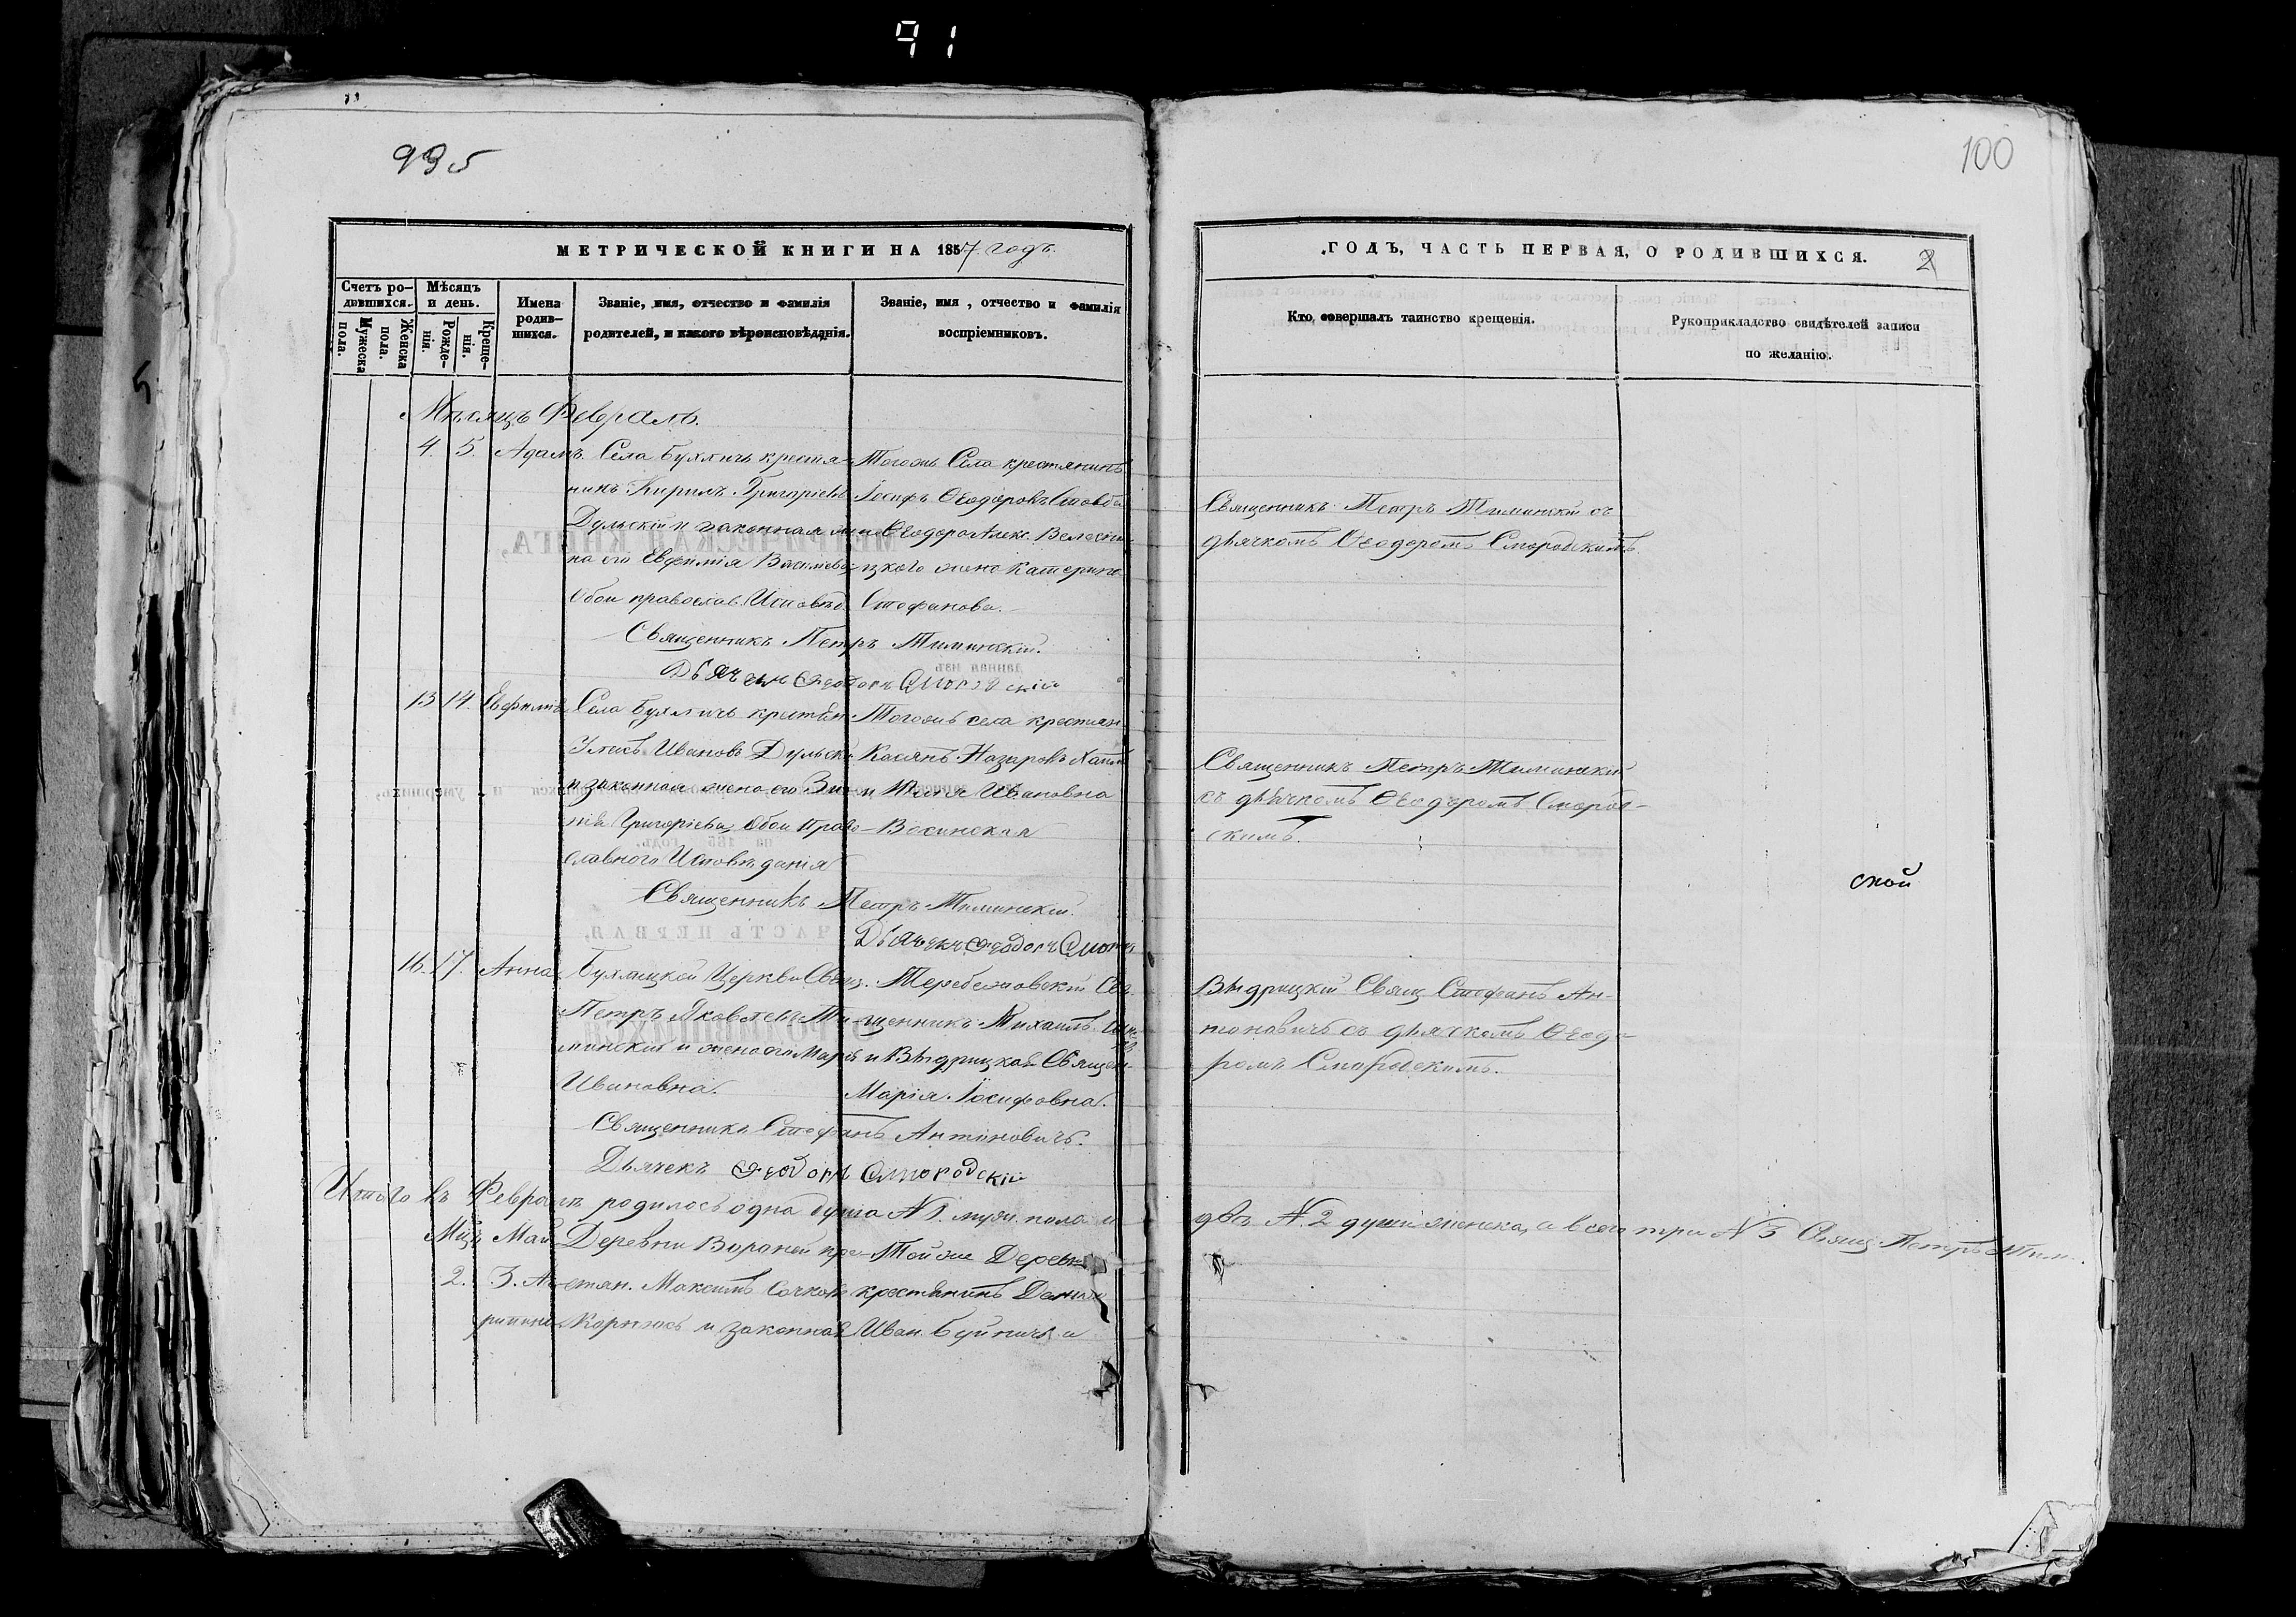 91
995
100
МЕТРИЧЕСКОЙ КНИГИ НА 1857 годъ.
Счетъ родившихся.
Мужеска пола.
Женска пола.
Мѣсяцъ и день.
Рожденія.
Крещенія.
Имена родившихся.
Званіе, имя, отчество и фамилія родителей, и какого вѣроисповѣданія.
Званіе, имя, отчество и фамилія воспріемниковъ.
Мѣсяцъ Февраль.
4. 5. Адамъ.
Села Бухличъ крестя-
нинъ Кирилъ Григорiевъ
Дульскій и законная же-
на его Евфимія Василiева
Обои православ. Исповѣд.
Тогожъ Села крестянинъ
Іосифъ Ѳеодоровъ
и Ѳеодора Алек.
цкого жена Катерина
Стефанова.
Священникъ Петръ Тиминскій.
Дьячекъ Ѳеодоръ Смородскій
13 14. Евфимъ
Села Бухличъ крестян.
Иванов Дульскі
и законная жена его Зи-
нія Григоріева, Обои Право-
славного Исповѣданія
Тогожъ села крестиян.
Касянъ Назаровъ
и Ивановна
Священникъ Петръ Тиминскій.
Дьячекъ Ѳеодоръ Смород
ской
16. 17. Анна
Бухлицкой Церкви Свящ.
Петръ Яковлевъ Ти-
минскій и жена его Марія
Ивановна.
Теребежовскій Свя-
щенникъ Михаилъ
и Вѣдрицкая Священ.
Марія Іосифовна.
Священникъ Стефанъ Антоновичъ.
Дьячекъ Ѳеодоръ Смородскій
Итого въ Февралѣ родилось одна душа N 1. муж. пола и
Мцъ Май
2. 3.
Деревни Вороней кре-
стян. Максимъ
и законная
Тойже Деревни
крестянинъ Данило
Иван. и
ГОДЪ, ЧАСТЬ ПЕРВАЯ, О РОДИВШИХСЯ.
2
Кто совершалъ таинство крещенія.
Рукоприкладство свидѣтелей записи по желанію.
Священникъ Петръ Тиминскій съ
дьячкомъ Ѳеодоромъ Смородскимъ.
Священникъ Петръ Тиминскій
съ дьячкомъ Ѳеодоромъ Смород-
скимъ.
Вѣдрицкій Свящ. Стефанъ Ан-
тоновичъ съ дьячкомъ Ѳеодо-
ромъ Смородскимъ.
двѣ N. 2 души женска, а всего три N 3 Свящ. Петръ Тим.